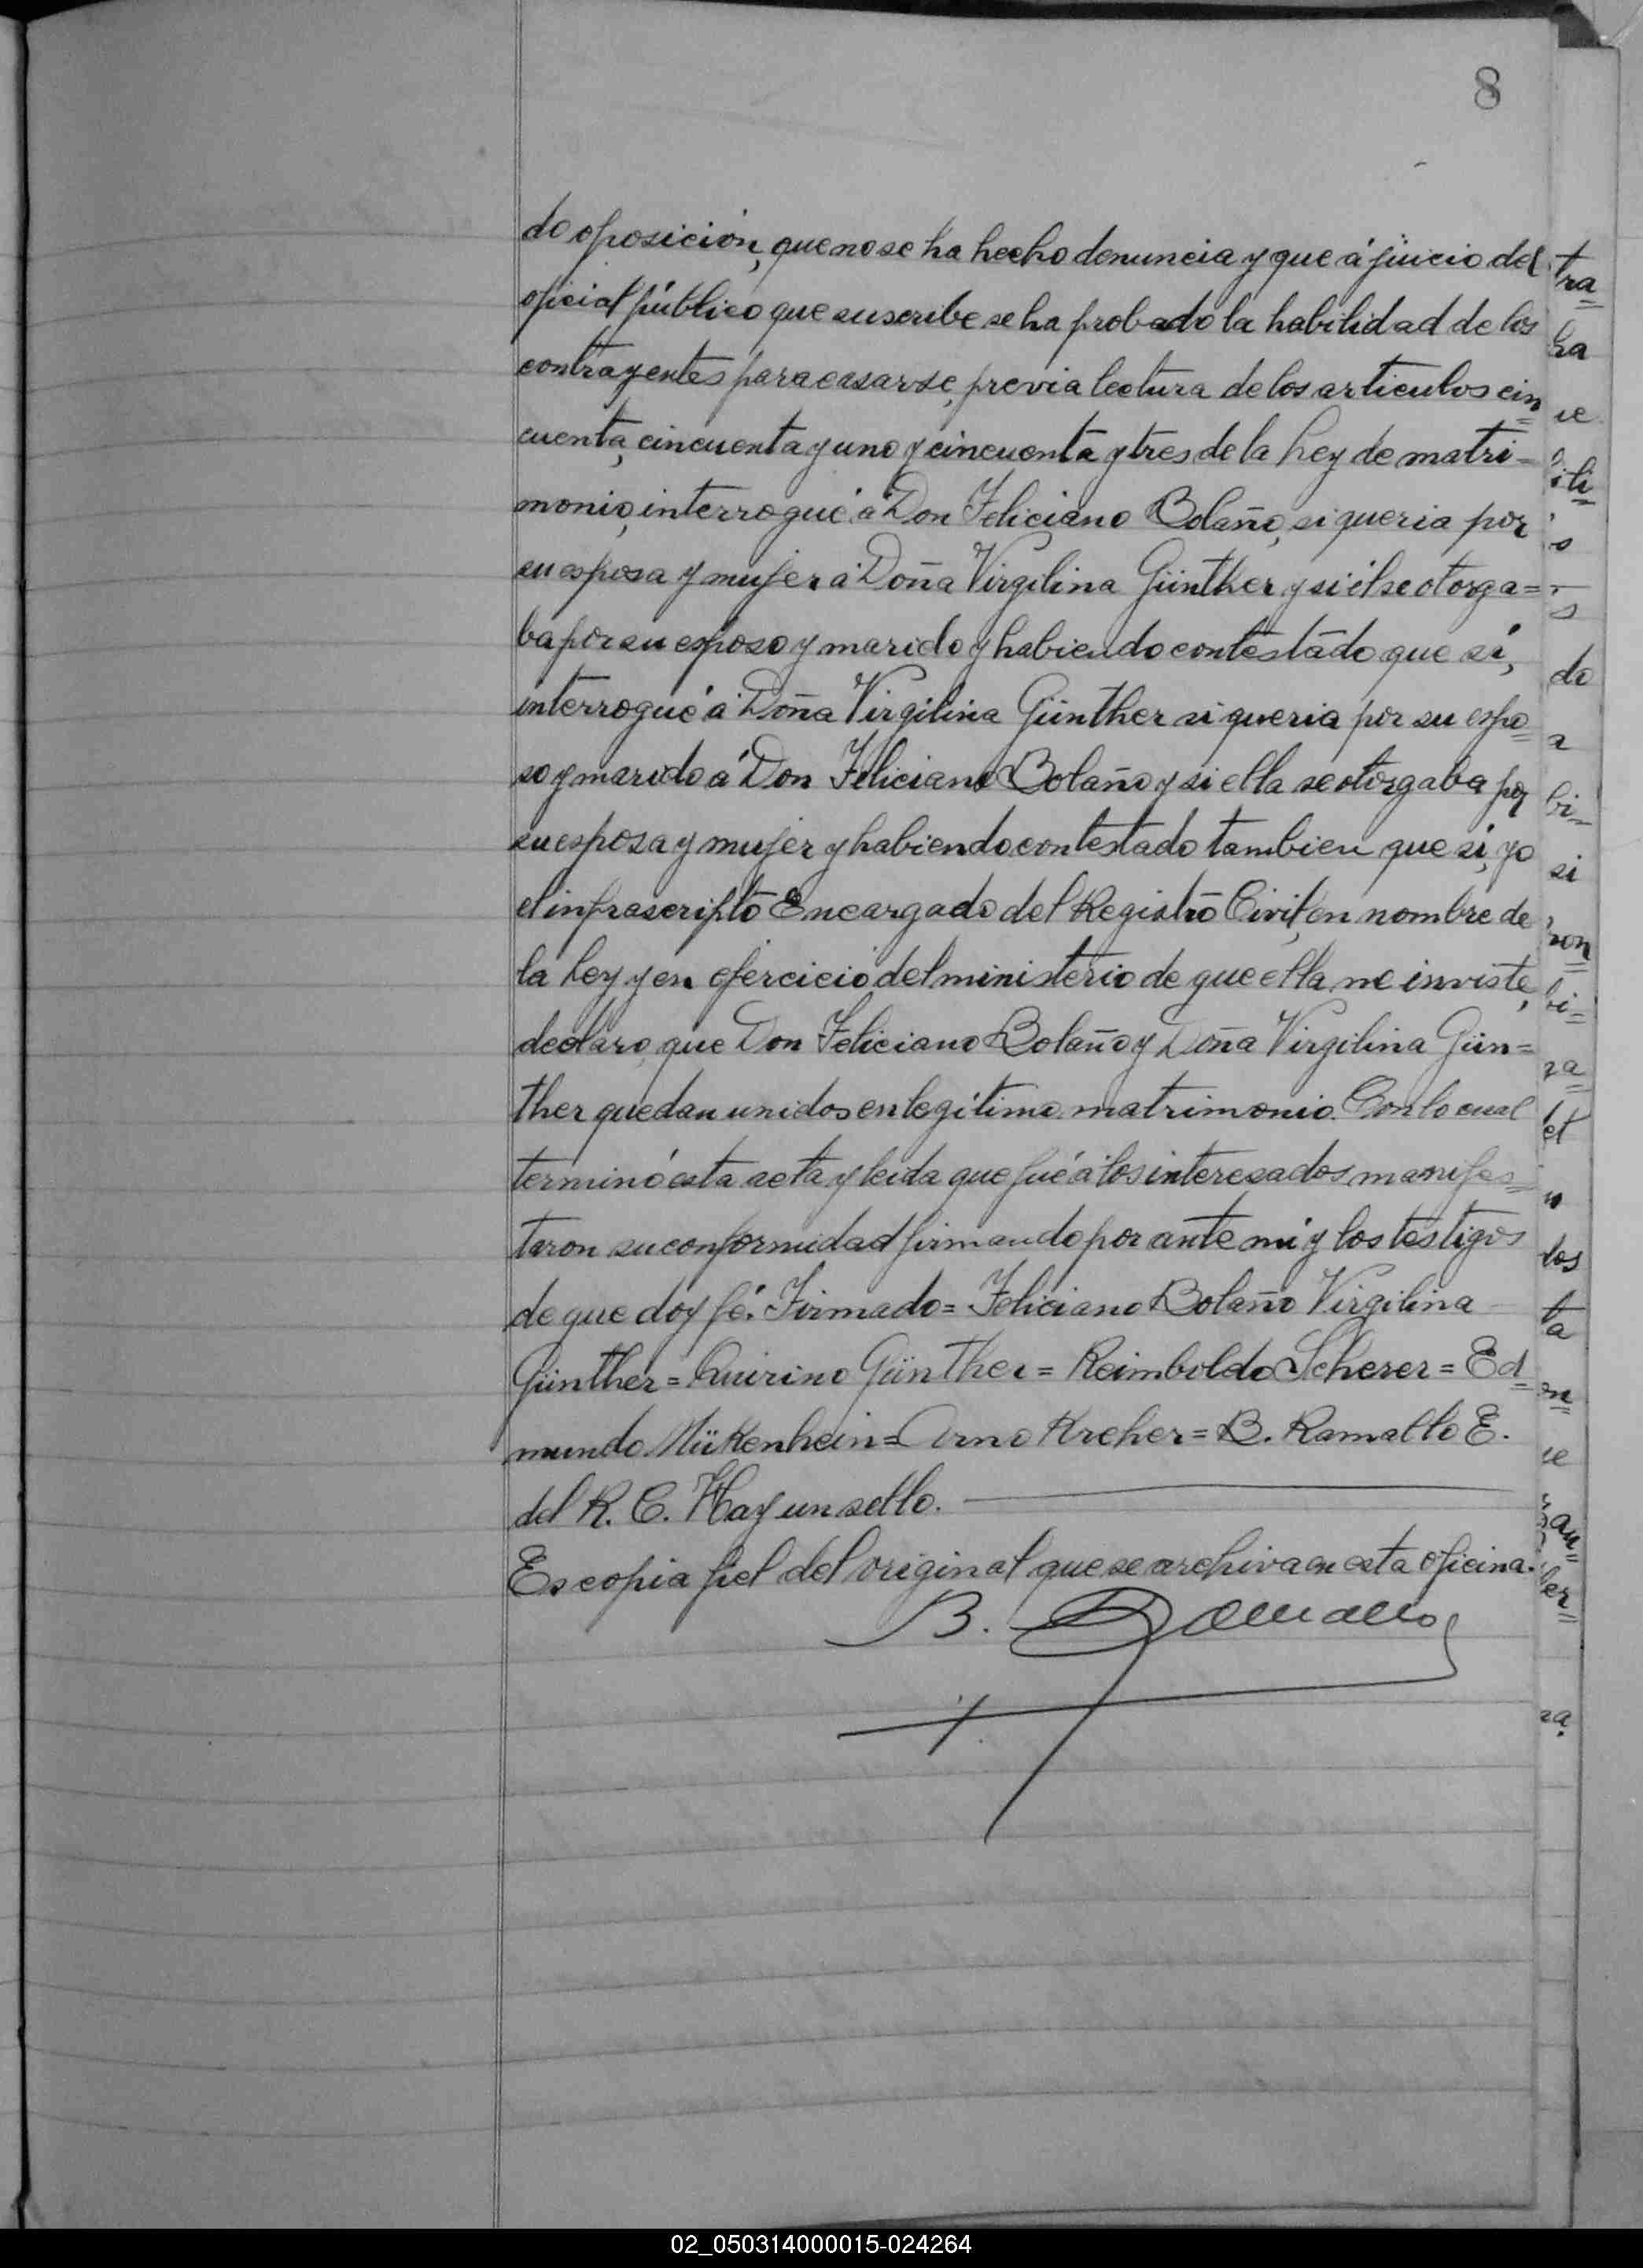 8
do oposición, que no se ha hecho denuncia y que á juicio del
oficial público que suscribe se ha probado la habilidad de los
contrayentes para casarse, previa lectura de los articulos cin=
cuenta, cincuenta y uno y cincuenta y tres de la Ley de matri=
monio, interrogué á Don Feliciano Bolaño, si queria por
su esposa y mujer á Doña Virgilina Günther y si él se otorga=
ba por su esposo y marido y habiendo contestado que sí,
interrogué á Doña Virgilina Günther si queria por su espo=
so y marido á Don Feliciano Bolaño y si ella se otorgaba por
su esposa y mujer y habiendo contestado tambien que sí, yo
el infrascripto Encargado del Registro Civil, en nombre de
la Ley y en ejercicio del ministerio de que ella me inviste,
declaro, que Don Feliciano Bolaño y Doña Virgilina Gün=
ther quedan unidos en legítimo matrimonio. Con lo cual
terminó esta acta y leida que fué á los interesados manifes=
taron su conformidad firmando por ante mí y los testigos
de que doy fé. Firmado= Feliciano Bolaño Virgilina
Günther= Quirino Günther= Reimboldo Scherer= Ed=
mundo Mükenhein= Arno Kreher= B. Ramallo E.
del R. C. Hay un sello.
Es copia fiel del original que se archiva en esta oficina.
B. Ramallo
02_050314000015-024264